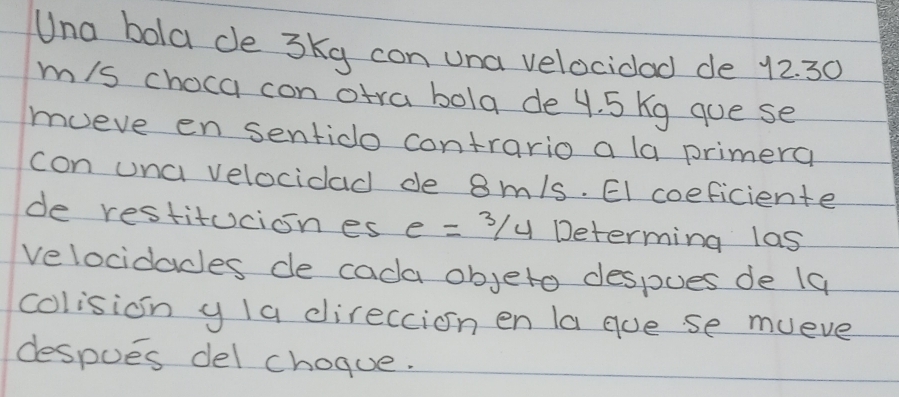 Una bola de 3Kg con una velocidad de 12.30
m/s choca con otra bola de 4.5 Kg que se
mueve en sentido contrario a la primera
con una velocidad de 8 m/s. El coeficiente
de restitución es e = 3/4 Determina las
velocidades de cada objeto despues de la
colisión y la dirección en la que se mueve
después del choque.